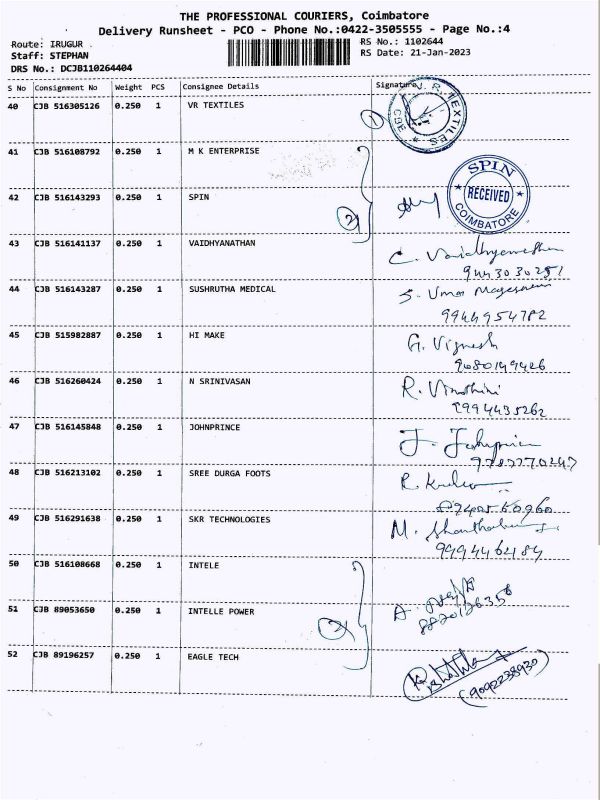 THE PROFESSIONAL COURIERS, Coimbatore
Delivery Runsheet - PCO - Phone No.:0422-3505555 - Page No.:4
Route: IRUGUR
RS No.: 1102644
Staff: STEPHAN
RS Date: 21-Jan-2023
DRS No.: DCJB110264404
S No Consignment No Weight PCS Consignee Details Signature
40 CJB 516305126 0.250 1 VR TEXTILES
1
V.R. TEXTILES
CBE
41 CJB 516108792 0.250 1 M K ENTERPRISE
42 CJB 516143293 0.250 1 SPIN
2
SPIN
RECEIVED
COIMBATORE
43 CJB 516141137 0.250 1 VAIDHYANATHAN
C. Vaidhyanathan
44 CJB 516143287 0.250 1 SUSHRUTHA MEDICAL
S. Uma
9944954782
45 CJB 515982887 0.250 1 HI MAKE
G. Vignesh
9080149426
46 CJB 516260424 0.250 1 N SRINIVASAN
R. Vinothini
9994435262
47 CJB 516145848 0.250 1 JOHNPRINCE
48 CJB 516213102 0.250 1 SREE DURGA FOOTS
49 CJB 516291638 0.250 1 SKR TECHNOLOGIES
M.
9994462184
50 CJB 516108668 0.250 1 INTELE
51 CJB 89053650 0.250 1 INTELLE POWER
2
52 CJB 89196257 0.250 1 EAGLE TECH
(9092238930)